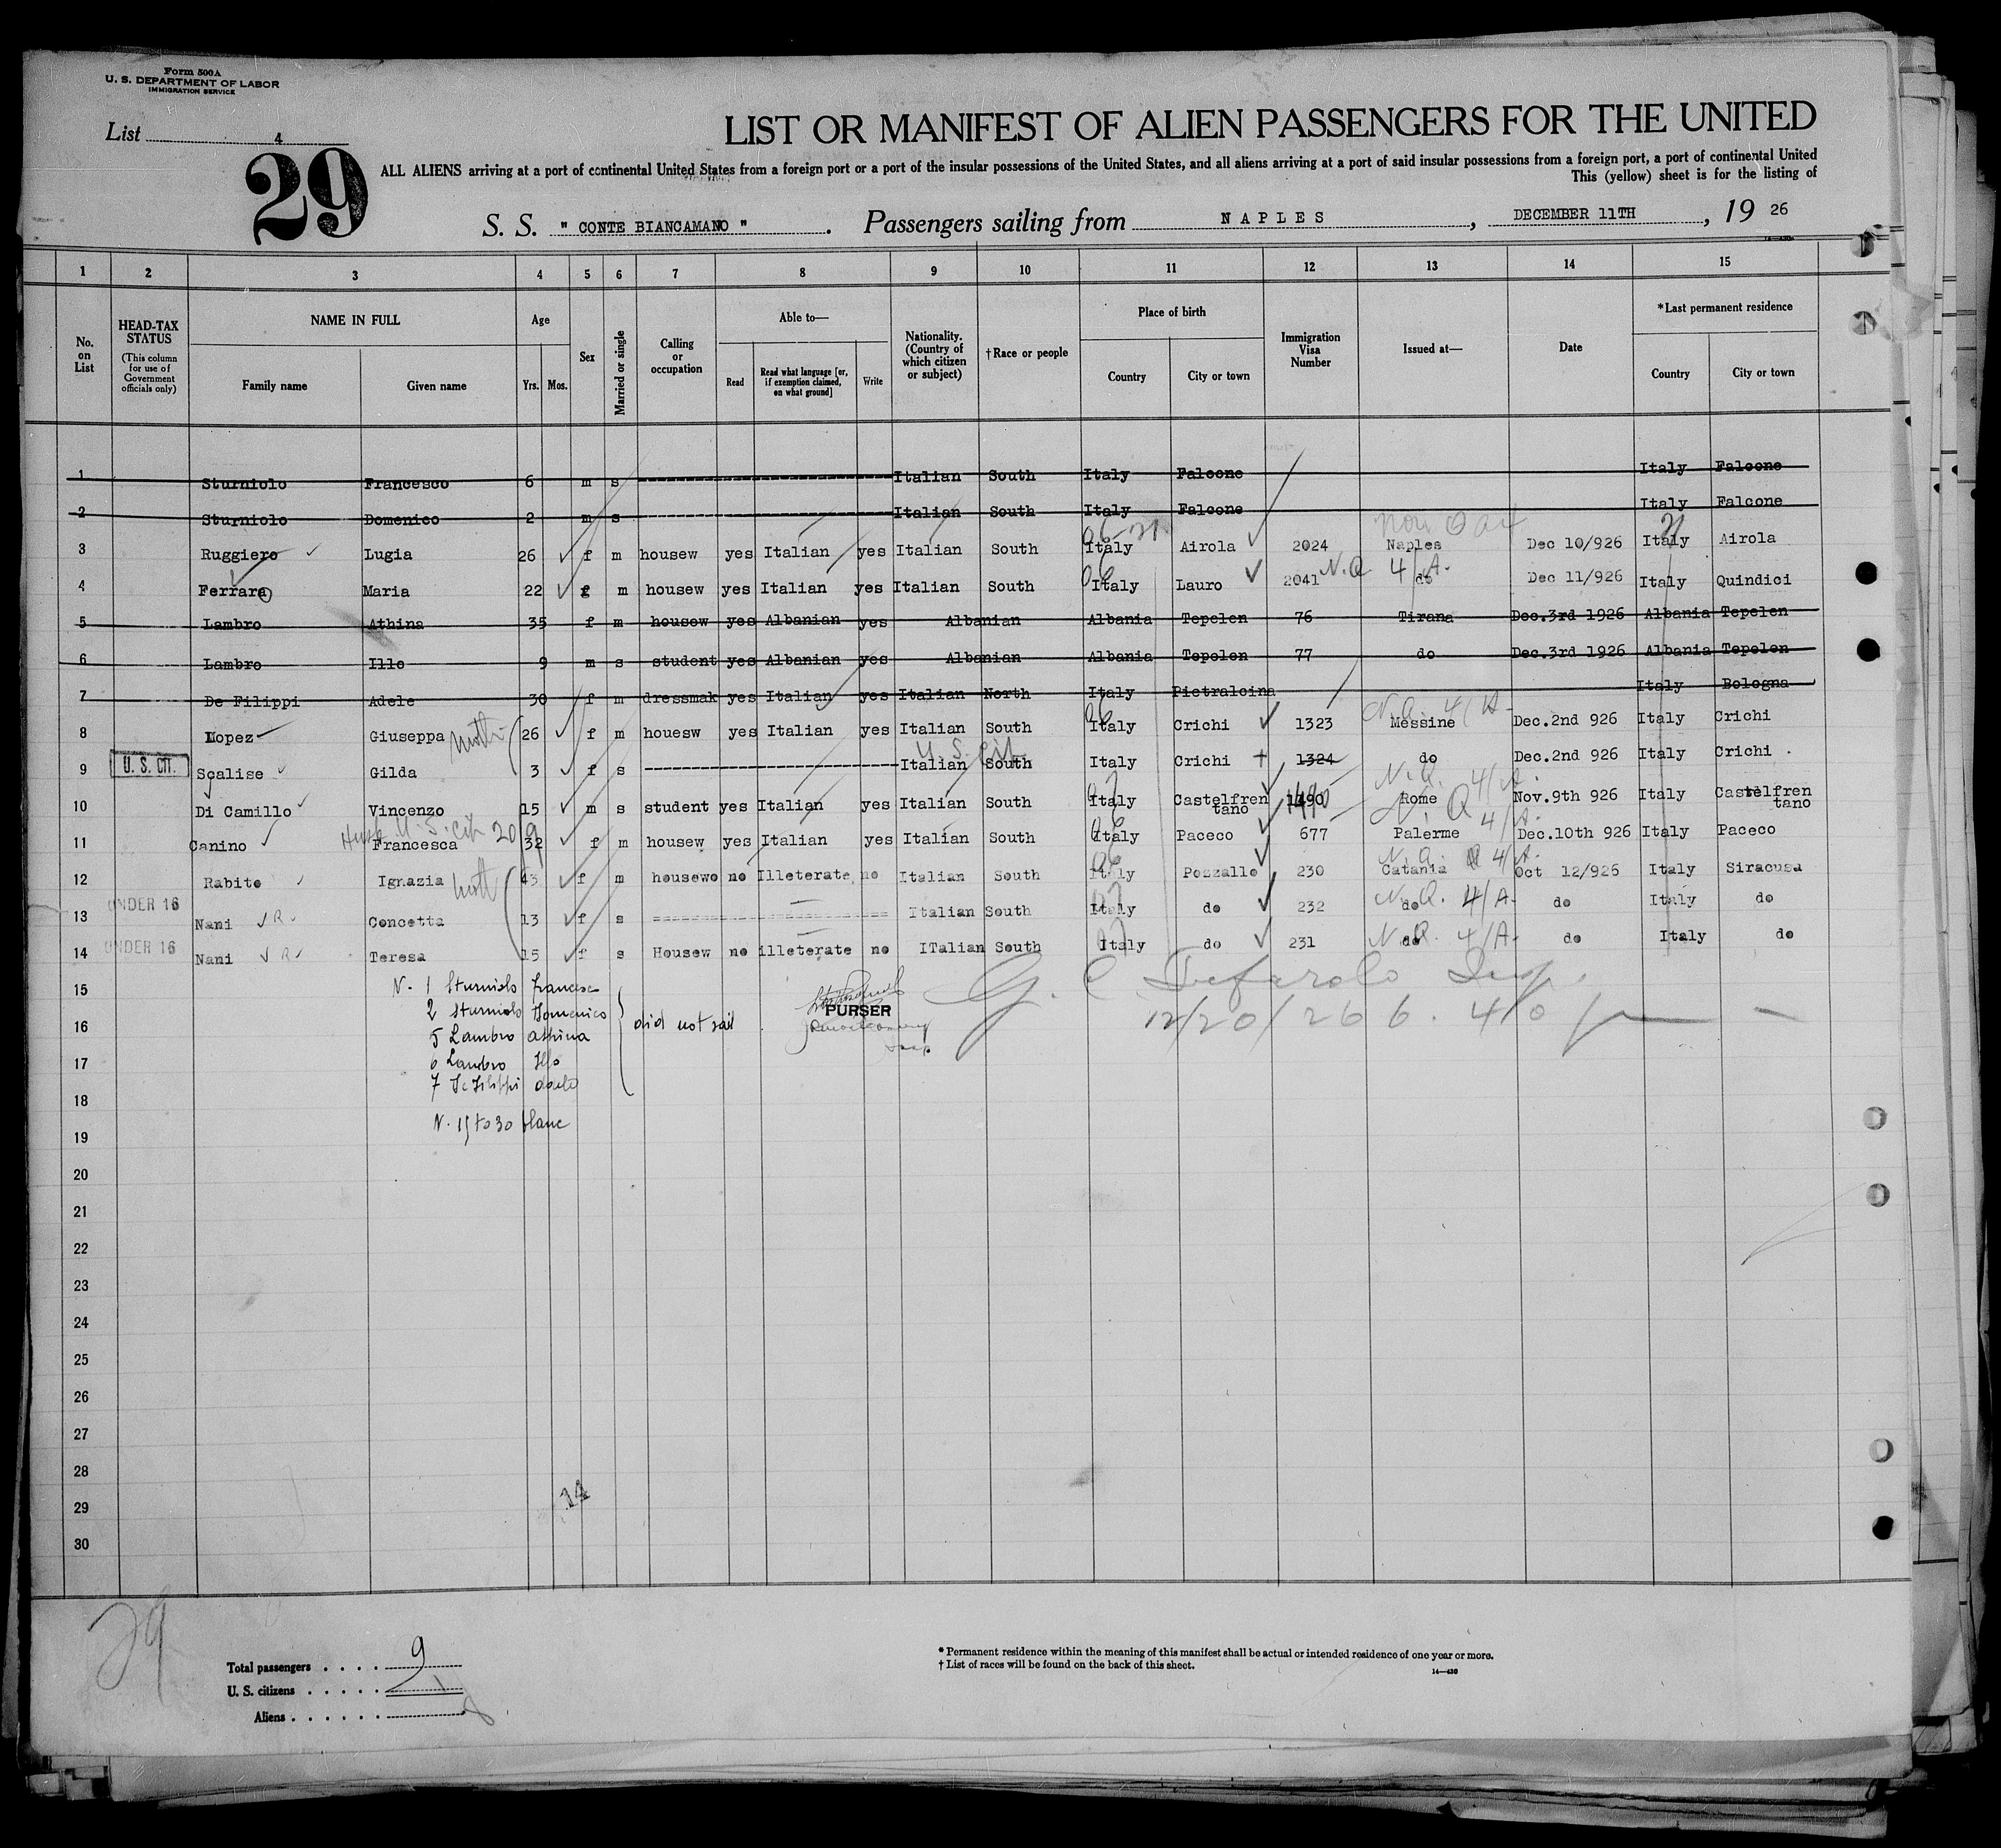 Form 500A
U. S. DEPARTMENT OF LABOR
IMMIGRATION SERVICE
List 4
29
LIST OR MANIFEST OF ALIEN PASSENGERS FOR THE UNITED
ALL ALIENS arriving at a port of continental United States from a foreign port or a port of the insular possessions of the United States, and all aliens arriving at a port of said insular possessions from a foreign port, a port of continental United
This (yellow) sheet is for the listing of
S. S. " CONTE BIANCAMANO " . Passengers sailing from N A P L E S , DECEMBER 11TH , 19 26
1 2 3 4 5 6 7 8 9 10 11 12 13 14 15
No. on List
HEAD-TAX STATUS
(This column for use of Government officials only)
NAME IN FULL
Family name Given name
Age
Yrs. Mos.
Sex
Married or single
Calling or occupation
Able to—
Read
Read what language [or, if exemption claimed, on what ground]
Write
Nationality. (Country of which citizen or subject)
†Race or people
Place of birth
Country City or town
Immigration Visa Number
Issued at—
Date
*Last permanent residence
Country City or town
1 Sturniolo Francesco 6 m s Italian South Italy Falcone Italy Falcone
2 Sturniolo Domenico 2 m s Italian South Italy Falcone Italy Falcone
3 Ruggiero Lugia 26 f m housew yes Italian yes Italian South Italy Airola 2024 Naples Dec 10/926 Italy Airola
4 Ferrara Maria 22 f m housew yes Italian yes Italian South Italy Lauro 2041 N.Q. 4/A- do Dec 11/926 Italy Quindici
5 Lambro Athina 35 f m housew yes Albanian yes Albanian Albania Tepelen 76 Tirana Dec.3rd 1926 Albania Tepelen
6 Lambro Illo 9 m s student yes Albanian yes Albanian Albania Tepelen 77 do Dec.3rd 1926 Albania Tepelen
7 De Filippi Adele 30 f m dressmak yes Italian yes Italian North Italy Pietralcina Italy Bologna
N.Q. 4/A-
8 Lopez Giuseppa moth 26 f m houesw yes Italian yes Italian South Italy Crichi 1323 Messine Dec.2nd 926 Italy Crichi
U. S. cit
U. S. CIT.
9 Scalise Gilda 3 f s Italian South Italy Crichi 1324 do Dec.2nd 926 Italy Crichi .
N.Q. 4/A.
10 Di Camillo Vincenzo 15 m s student yes Italian yes Italian South Italy Castelfren tano 1490 Rome Nov.9th 926 Italy Castelfren tano
Husb U.S. cit 20 N.Q 4/A.
11 Canino Francesca 32 f m housew yes Italian yes Italian South Italy Paceco 677 Palerme Dec.10th 926 Italy Paceco
N.Q. 4/A.
12 Rabito Ignazia moth 43 f m housewo no Illeterate no Italian South Italy Pozzallo 230 Catania Oct 12/926 Italy Siracusa
UNDER 16
13 Nani R Concetta 13 f s Italian South Italy do 232 do N.Q. 4/A- do Italy do
UNDER 16
14 Nani R Teresa 15 f s Housew no illeterate no ITalian South Italy do 231 do N.Q. 4/A- do Italy do
15 N. 1 Sturniolo Francesco
2 Sturniolo Domenico
16 5 Lambro Athina
did not sail
PURSER
12/20/26
17 6 Lambro Illo
7 De Filippi Adele
18
N. 15 to 30 blanc
19
20
21
22
23
24
25
26
27
28
29
30
14
29
Total passengers . . . . 9
U. S. citizens . . . . . 1
Aliens . . . . . . 8
* Permanent residence within the meaning of this manifest shall be actual or intended residence of one year or more.
† List of races will be found on the back of this sheet.
14—430